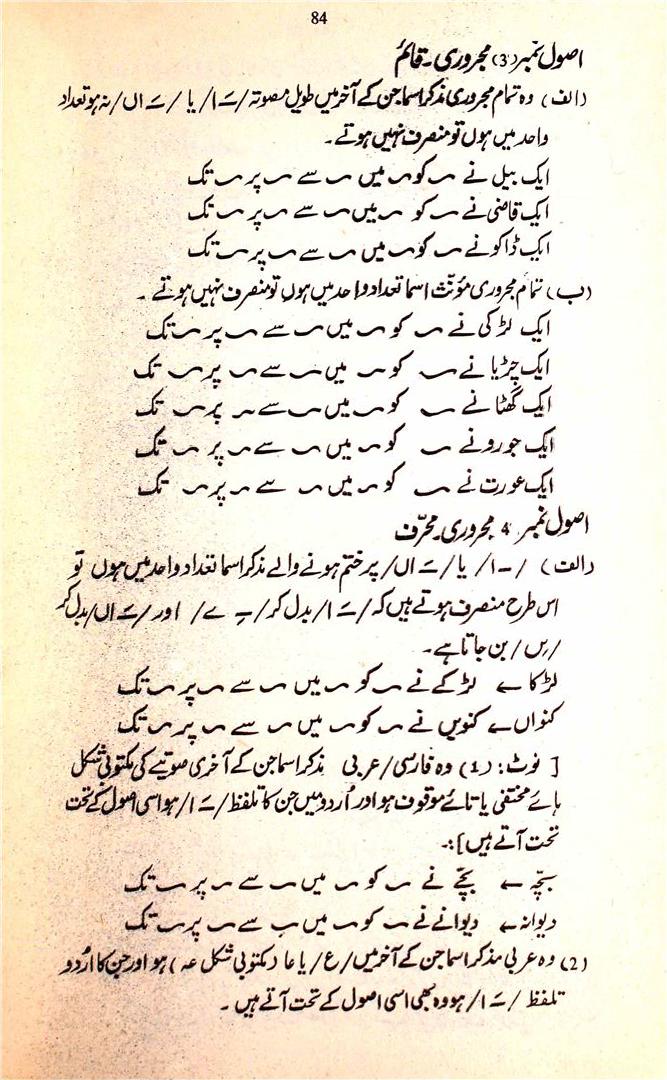 84
اصول نمبر (3) مجروری۔ قائم
(الف) وہ تمام مجروری مذکر اسما جن کے آخر میں طویل مصوتہ /ـَ ا/ یا /ـَ اں/ نہ ہو تعداد
واحد میں ہوں تو منصرف نہیں ہوتے۔
ایک بیل نے ـــ کو ـــ میں ـــ سے ـــ پر ـــ تک
ایک قاضی نے ـــ کو ـــ میں ـــ سے ـــ پر ـــ تک
ایک ڈاکو نے ـــ کو ـــ میں ـــ سے ـــ پر ـــ تک
(ب) تمام مجروری مؤنّث اسما تعداد واحد میں ہوں تو منصرف نہیں ہوتے۔
ایک لڑکی نے ـــ کو ـــ میں ـــ سے ـــ پر ـــ تک
ایک چڑیا نے ـــ کو ـــ میں ـــ سے ـــ پر ـــ تک
ایک گھٹا نے ـــ کو ـــ میں ـــ سے ـــ پر ـــ تک
ایک جورو نے ـــ کو ـــ میں ـــ سے ـــ پر ـــ تک
ایک عورت نے ـــ کو ـــ میں ـــ سے ـــ پر ـــ تک
اصول نمبر 4 مجروری۔ محرّف
(الف) /ـَ ا/ یا /ـَ اں/ پر ختم ہونے والے مذکر اسما تعداد واحد میں ہوں تو
اس طرح منصرف ہوتے ہیں کہ /ـَ ا/ بدل کر /ـِ ے/ اور /ـَ اں/ بدل کر
/یں/ بن جاتا ہے۔
لڑکا ← لڑکے نے ـــ کو ـــ میں ـــ سے ـــ پر ـــ تک
کنواں ← کنویں نے ـــ کو ـــ میں ـــ سے ـــ پر ـــ تک
[ نوٹ: (1) وہ فارسی/عربی مذکر اسما جن کے آخری صوتیے کی مکتوبی شکل
ہائے مختفی یا تائے موقوف ہو اور اُردو میں جن کا تلفظ /ـَ ا/ ہو اسی اصول کے تحت
تحت آتے ہیں]:۔
بچّہ ← بچّے نے ـــ کو ـــ میں ـــ سے ـــ پر ـــ تک
دیوانہ ← دیوانے نے ـــ کو ـــ میں ـــ سے ـــ پر ـــ تک
(2) وہ عربی مذکر اسما جن کے آخر میں /ع/ یا عا (مکتوبی شکل عہ) ہو اور جن کا اُردو
تلفظ /ـَ ا/ ہو وہ بھی اسی اصول کے تحت آتے ہیں۔